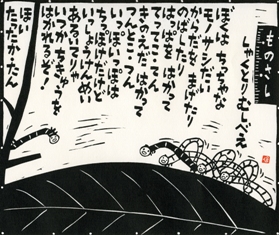 ものさし
しゃくとりむしべえ
ぼくは ちっちゃな
モノサシだい
からだを まげたり
のばしたり
はっぱを はかって
つんとこ つん
きのえだ はかって
つんとこ つん
いっぽ いっぽは
いっしょけんめい
あるいてりゃ
いつか ちきゅうを
はかれるぞ!
ほい
たったかたん